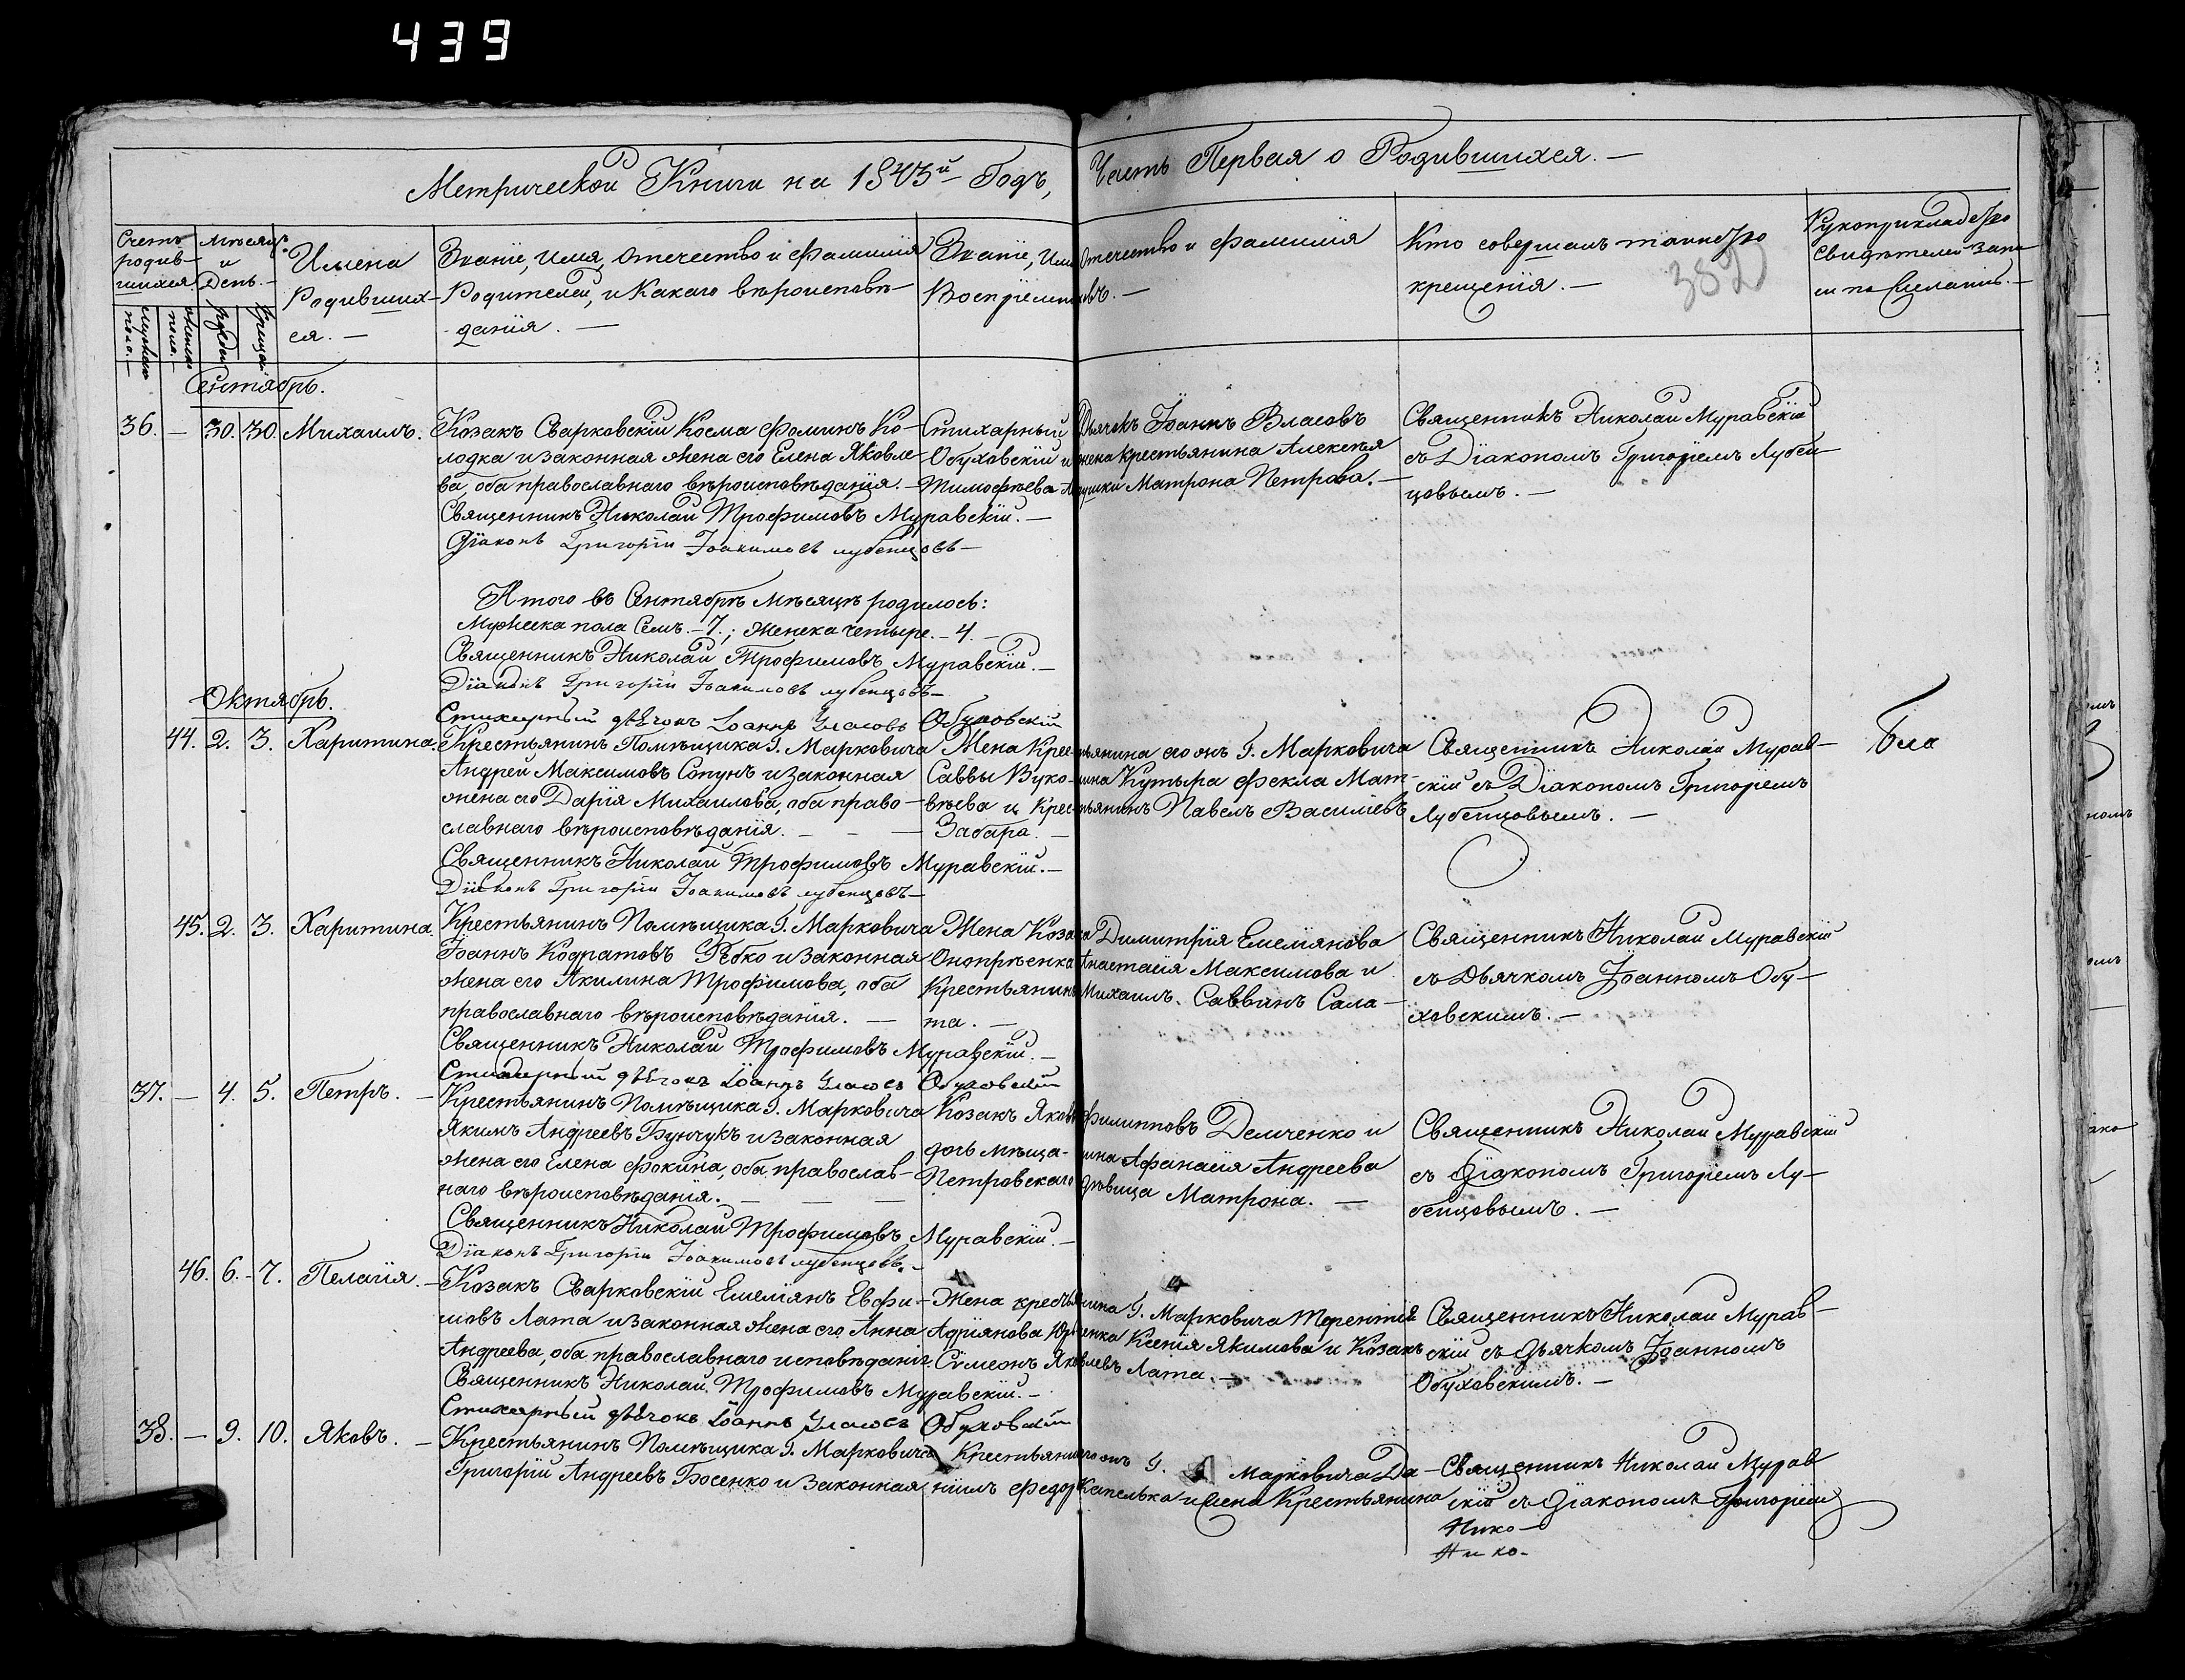 439
Метрической Книги на 1843й Годъ, Часть Первая о Родившихся. —
Счетъ родив-шихся. Мѣсяцъ и День. Имена Родивших-ся. — Званіе, Имя, Отечество и Фамилія Родителей, и Какаго вѣроисповѣ-данія. — Званіе, Имя Отечество и Фамилія Воспріемниковъ. — Кто совершалъ таинство крещенія. — Рукоприкладство Свидѣтелей запи
382
Сентябрь.
36. — 30. 30. Михаилъ. Козакъ Сварковскій Косма Фоминъ Ко-
лодка и законная жена его Елена Яковле-
ва, оба православнаго вѣроисповѣданія. —
Стихарный Дьячокъ Іоаннъ Власовъ
Обуховскій и жена крестьянина Алексѣя
Тимофѣева Матрона Петрова. —
Священникъ Николай Муравскій
съ Діакономъ Григоріемъ Лубен-
цовымъ. —
Священникъ Николай Трофимовъ Муравскій. —
Діаконъ Григорій Іоакимовъ лубенцовъ —
Итого въ Сентябрѣ мѣсяцѣ родилось:
Мужеска пола Семъ. — 7.; Женска четыре. — 4. —
Священникъ Николай Трофимовъ Муравскій. —
Діаконъ Григорій Іоакимовъ лубенцовъ —
Стихарный дьячокъ Іоаннъ Власовъ Обуховскій
Октябрь.
44. 2. 3. Харитина. Крестьянинъ Помѣщика Г. Марковича
Андрей Максимовъ Сопунъ и законная
жена его Дарія Михаилова, оба право-
славнаго вѣроисповѣданія. — — —
Жена Крестьянина его жъ Г. Марковича
Саввы Кутыра Фекла Мат-
вѣева и Крестьянинъ Павелъ Василіевъ
Забара. —
Священникъ Николай Мурав-
скій съ Діакономъ Григоріемъ
Лубенцовымъ. —
Священникъ Николай Трофимовъ Муравскій. —
Діаконъ Григорій Іоакимовъ лубенцовъ —
45. 2. 3. Харитина. Крестьянинъ Помѣщика Г. Марковича
Іоаннъ Кодратовъ Рѣбко и законная
жена его Акилина Трофимова, оба
православнаго вѣроисповѣданія. —
Жена Козака Димитрія Емеліянова
Оноприенка Анастасія Максимова и
Крестьянинъ Михаилъ Саввинъ Сала-
та. —
Священникъ Николай Муравскій
съ Дьячкомъ Іоанномъ Обу-
ховскимъ. —
Священникъ Николай Трофимовъ Муравскій. —
Стихарный дьячокъ Іоаннъ Власовъ Обуховскій
37. — 4. 5. Петръ. — Крестьянинъ Помѣщика Г. Марковича
Якимъ Андреевъ Бунчукъ и законная
жена его Елена Фокина, оба православ-
наго вѣроисповѣданія. — — —
Козакъ Яковъ Филипповъ Демченко и
дочь мѣщанина Афанасія Андреева
Петровскаго дѣвица Матрона. —
Священникъ Николай Муравскій
съ Діакономъ Григоріемъ Лу-
бенцовымъ. —
Священникъ Николай Трофимовъ Муравскій. —
Діаконъ Григорій Іоакимовъ лубенцовъ. —
46. 6. 7. Пелагія. — Козакъ Сварковскій Емеліянъ Евфи-
мовъ Лата и законная жена его Анна
Андреева, оба православнаго исповѣданія.
Жена крестьянина Г. Марковича Терентія
Адріянова Юрченка Ксенія Якимова и Козакъ
Сѵмеонъ Яковлевъ Лата. —
Священникъ Николай Мурав-
скій съ дьячкомъ Іоанномъ
Обуховскимъ. —
Священникъ Николай Трофимовъ Муравскій. —
Стихарный дьячокъ Іоаннъ Власовъ Обуховскій
38. — 9. 10. Яковъ. — Крестьянинъ Помѣщика Г. Марковича
Григорій Андреевъ Босенко и законная
Крестьянинъ Г. Марковича Да-
ніилъ Федоръ Капелька и жена Крестьянина
Священникъ Николай Мурав
скій съ Діакономъ Григоріем
Нико —
Нико-